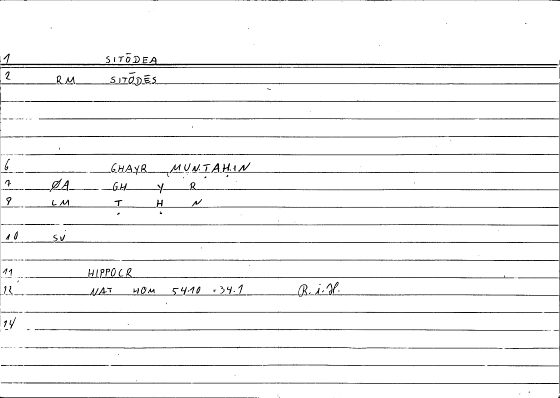 1 SITŌDEA
2 RM SITŌDĒS
6 GHAYR MUNTAHIN
7 ØA GH Y R
9 LM Ṭ Ḥ N
10 SV
11 HIPPOCR
12 NAT HOM 5410 .34.1 R.i.H.
14